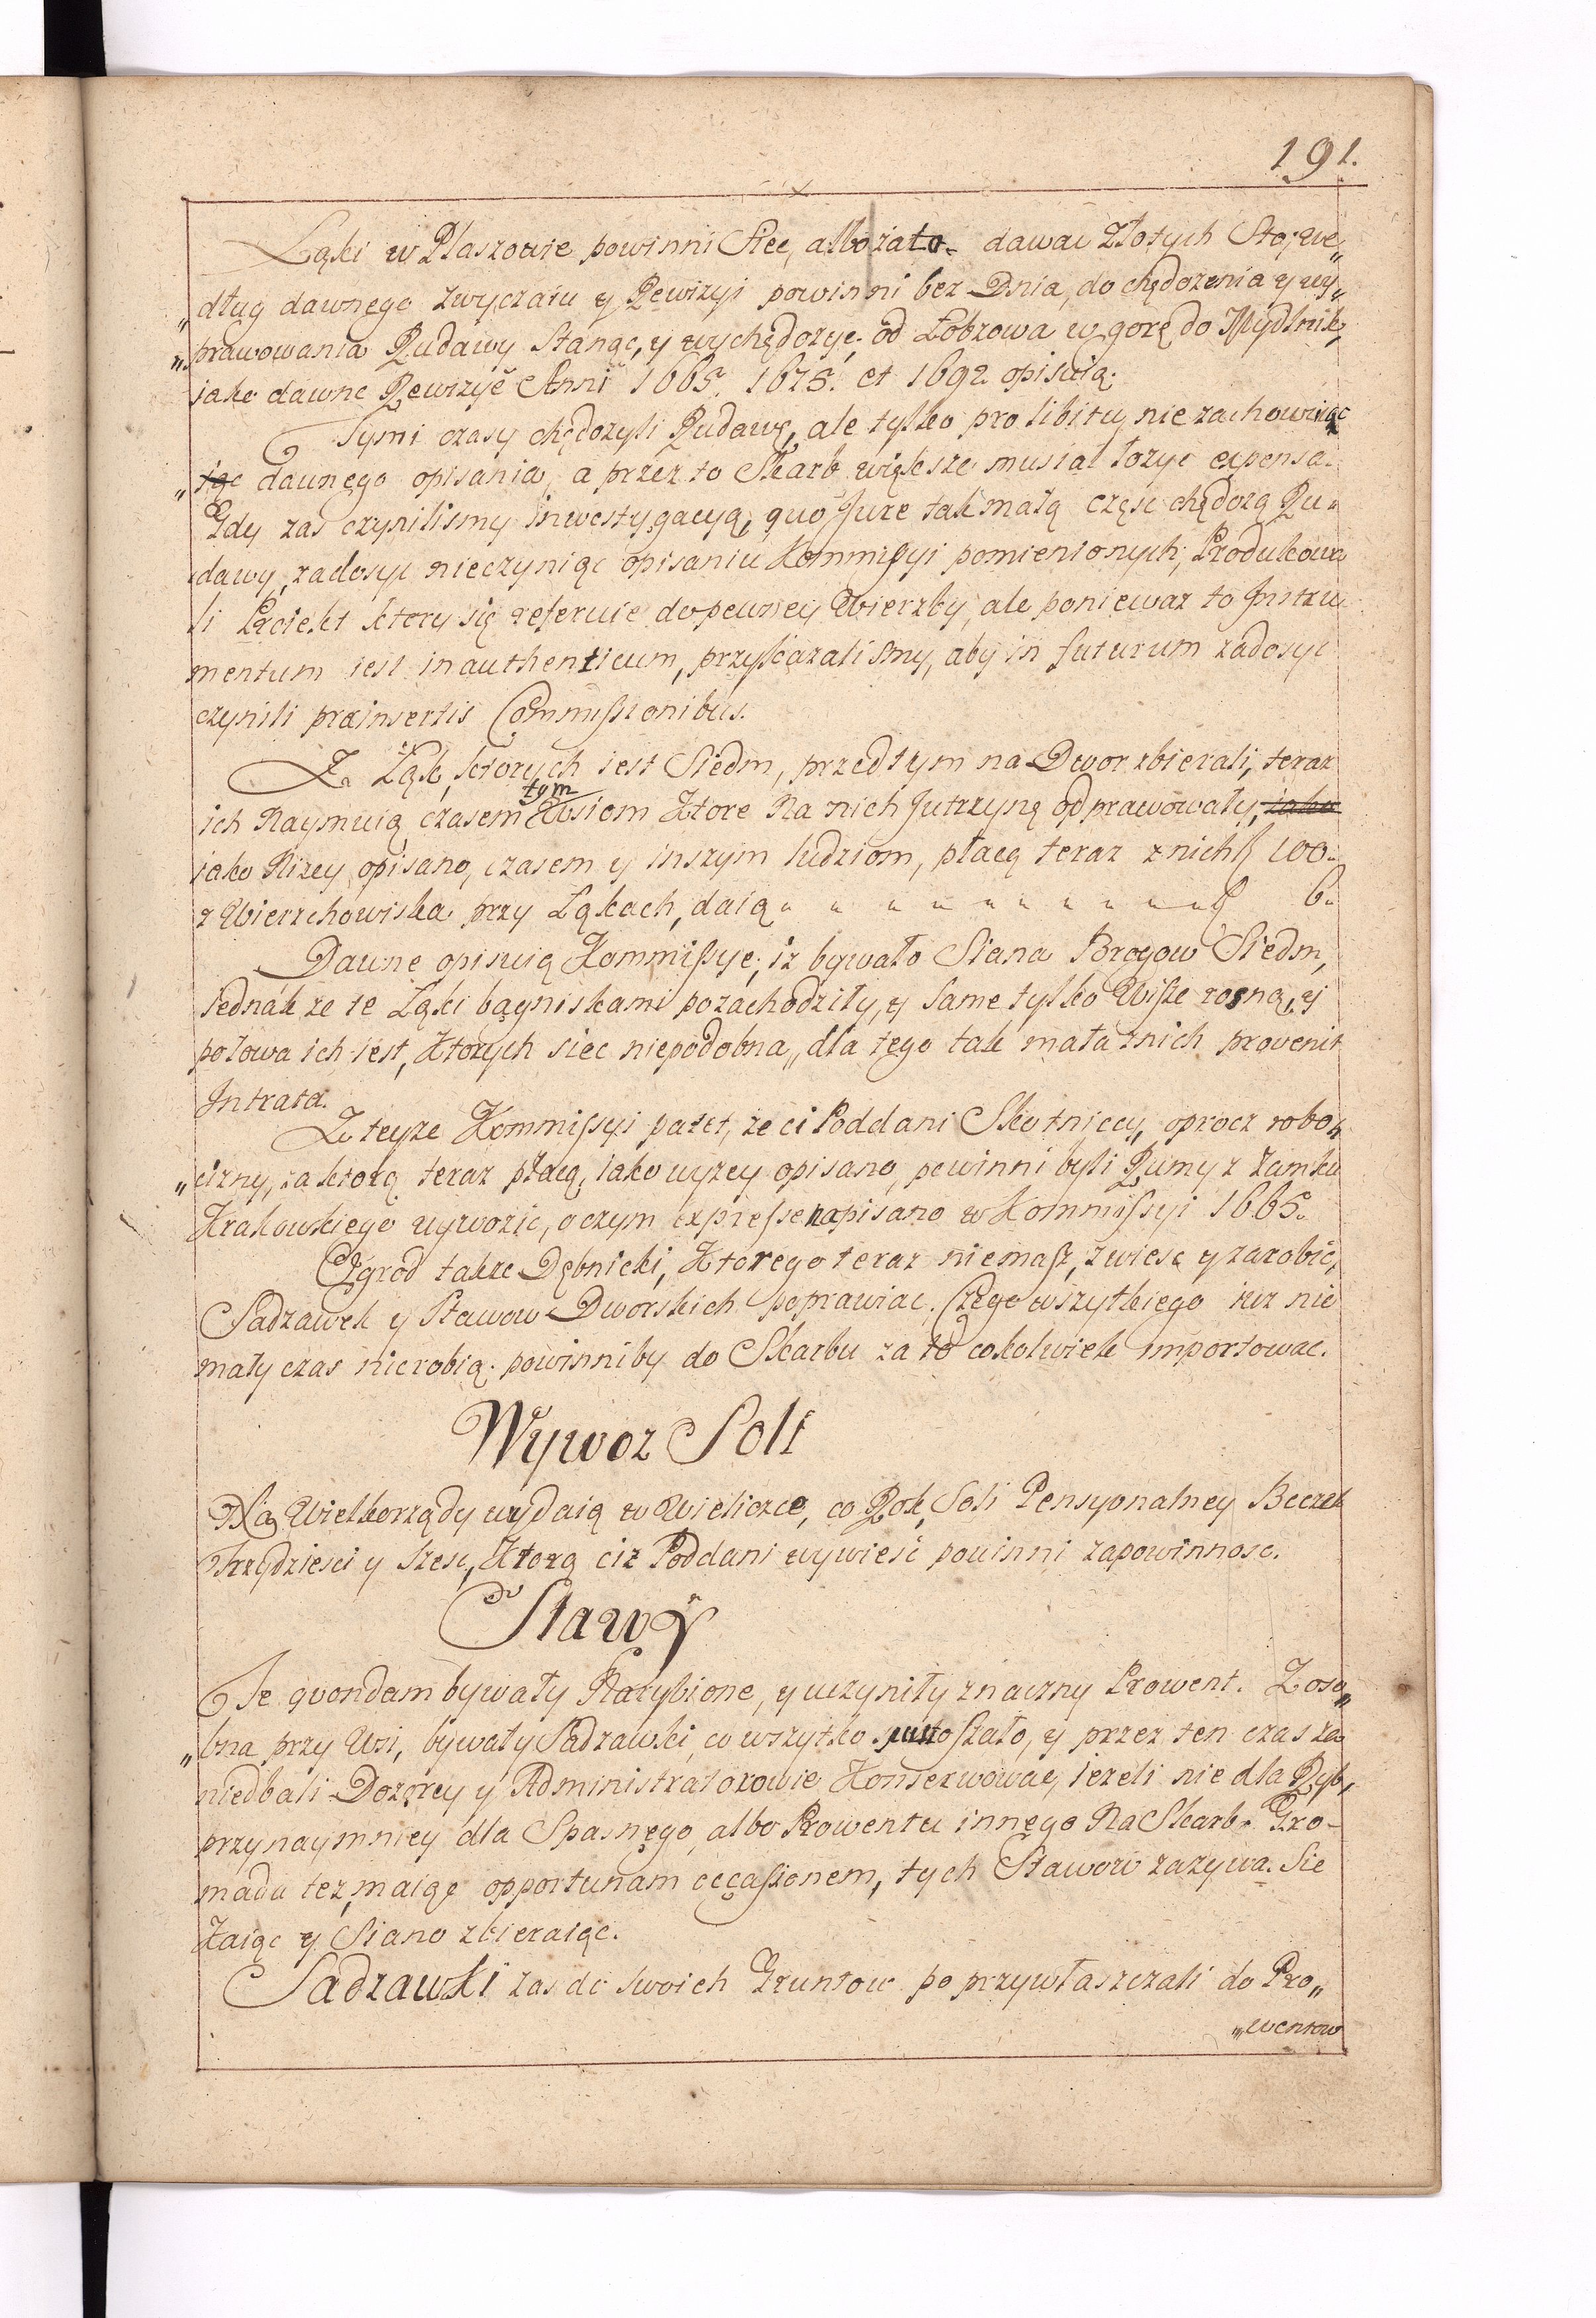 191.
Łąki w Płaszowie powinni Siec, albo zato dawac Złotych Sto, we„
„dług dawnego zwyczaiu y Rewizyi powinni bez Dnia, do chędozenia y wy„
„prawowania Rudawy Stanąc, y wychędozyc od Łobzowa w gorę do Mydlnik,
iako dawne Rewizye Anni 1665. 1675. et 1692 opisuią.
Tymi czasy chędozyli Rudawę, ale tylko pro libitu, nie zachowuiąc
„iąc dawnego opisania, a przez to Skarb większe musiał łozyc expensa.
Gdy zas czynilismy inwestygacyą, quo Jure tak małą częsc chędozą Ru„
dawy, zadosyc nieczyniąc opisaniu Kommissyi pomienionych, Produkowa
li Proiekt ktory się referuie do pewney Wierzby, ale poniewaz to Instru
mentum iest inauthenticum, przykazalismy, aby in futurum zadosyc
czynili præinsertis Commissionibus.
Z Łąk, ktorych iest Siedm, przedtym na Dwor zbierali, teraz
ich Naymuią czasem tym Wsiom Ktore Na nich Jutrzyną odprawowały, iako
iako Nizey opisano, czasem y inszym ludziom, płacą teraz z nich f 100.
z Wierzchowiska przy Łąkach, daią f 6.
Dawne opisuią Kommissye, iz bywało Siana Brogow Siedm,
Jednak ze te Łąki bagniskami pozachodziły, y same tylko Wisze rosną, y
połowa ich iest, Ktorych siec niepodobna, dla tego tak mała znich provenit
Intrata.
Z teyze Kommissyi patet, ze ci Poddani Skotniccy, oprocz robo„
„cizny, za ktorą teraz płacą, iako wyzey opisano, powinni byli Rumy z Zamku
Krakowskiego wywozic, o czym expresse napisano w Kommissyi 1665.
Ogrod takze Dębnicki, Ktorego teraz niemasz, zwiesc y zarobic,
Sadzawek y Stawow Dworskich poprawiac. Czego wszytkiego iuz nie
mały czas nierobią powinniby do Skarbu za to cokolwiek importowac.
Wywoz Soli
Na Wielkorządy wydaią w Wieliczce, co Rok, Soli Pensyonalney Beczek
Trzydziesci y szesc, Ktorą ciz Poddani wywiesc powinni zapowinnosc.
Stawy
Te quondam bywały Narybione, y uczyniły znaczny Prowent. Z oso„
„bna przy Wsi, bywały Sadzawki, co wszytko spustoszało, y przez ten czas za
niedbali Dozorcy y Administratorowie Konserwowac, iezeli nie dla Ryb,
przynaymniey dla Spasnego, albo Prowentu innego Na Skarb. Gro-
mada tez, maiąc opportunam occasionem, tych Stawow zazywa. Sie
kaiąc y Siano zbieraiąc.
Sadzawki zas do swoich Gruntow poprzywłaszczali do Pro„
„wentow